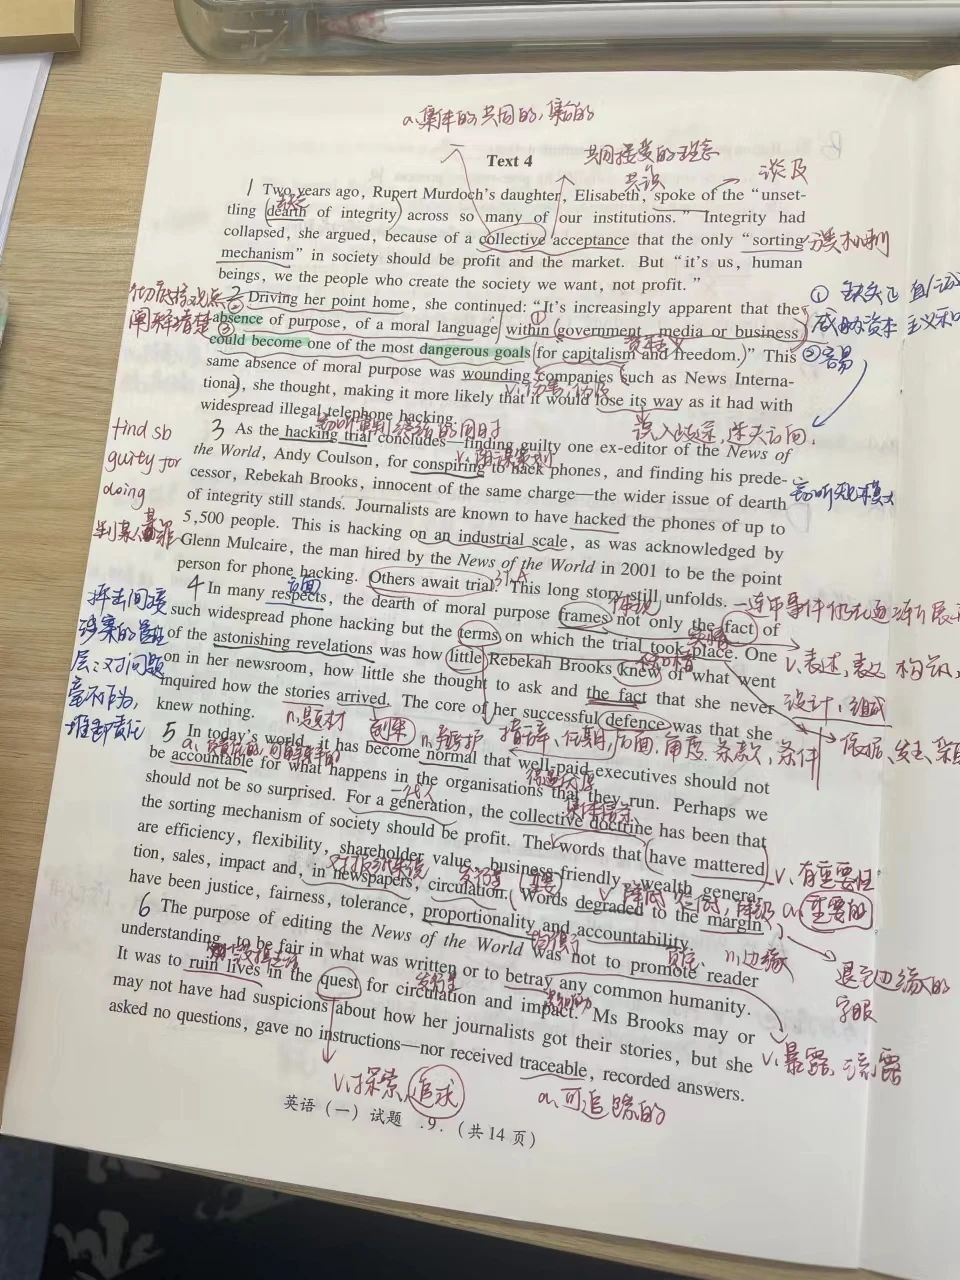 a.集体的,共同的,集合的
Text 4
共同接受的理念
共识
谈及
1 Two years ago, Rupert Murdoch's daughter, Elisabeth, spoke of the "unset-
缺乏
tling dearth of integrity across so many of our institutions." Integrity had
collapsed, she argued, because of a collective acceptance that the only "sorting
分类机制
mechanism" in society should be profit and the market. But "it's us, human
beings, we the people who create the society we want, not profit."
彻底搞观点
阐释清楚
2 Driving her point home, she continued: "It's increasingly apparent that the
absence of purpose, of a moral language within government, media or business
could become one of the most dangerous goals for capitalism and freedom." This
资本主义
same absence of moral purpose was wounding companies such as News Interna-
tional, she thought, making it more likely that it would lose its way as it had with
widespread illegal telephone hacking.
误入歧途,迷失方向.
find sb
guity for
doing
判某人有罪
3 As the hacking trial concludes—finding guilty one ex-editor of the News of
the World, Andy Coulson, for conspiring to hack phones, and finding his prede-
cessor, Rebekah Brooks, innocent of the same charge—the wider issue of dearth
窃听规模大
of integrity still stands. Journalists are known to have hacked the phones of up to
5,500 people. This is hacking on an industrial scale, as was acknowledged by
Glenn Mulcaire, the man hired by the News of the World in 2001 to be the point
person for phone hacking. Others await trial. This long story still unfolds.
抨击间接
涉案的
层:对问题
毫不作为,
推卸责任
方面
4 In many respects, the dearth of moral purpose frames not only the fact of
such widespread phone hacking but the terms on which the trial took place. One
v.表述,表达
of the astonishing revelations was how little Rebekah Brooks knew of what went
on in her newsroom, how little she thought to ask and the fact that she never
设计,组成
inquired how the stories arrived. The core of her successful defence was that she
knew nothing.
n.题材
n.辩护
措辞、任期,方面,角度.条款,条件
5 In today's world, it has become normal that well-paid executives should not
be accountable for what happens in the organisations that they run. Perhaps we
should not be so surprised. For a generation, the collective doctrine has been that
一代人
the sorting mechanism of society should be profit. The words that have mattered
v.有重要性
are efficiency, flexibility, shareholder value, business-friendly, wealth genera-
tion, sales, impact and, in newspapers, circulation. Words degraded to the margin
a.重要的
have been justice, fairness, tolerance, proportionality and accountability.
n.边缘
退至边缘的
字眼
6 The purpose of editing the News of the World was not to promote reader
understanding, to be fair in what was written or to betray any common humanity.
It was to ruin lives in the quest for circulation and impact. Ms Brooks may or
发行量
影响力
v.暴露,流露
may not have had suspicions about how her journalists got their stories, but she
asked no questions, gave no instructions—nor received traceable, recorded answers.
v.探索,追求
a.可追踪的
英语(一)试题 .9.(共14页)